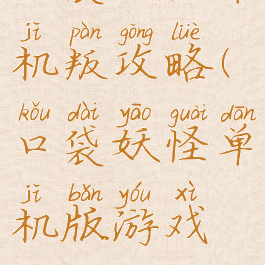 jī pàn gōng lüè
机叛攻略(
kǒu dài yāo guài dān
口袋妖怪单
jī bǎn yóu xì
机版游戏